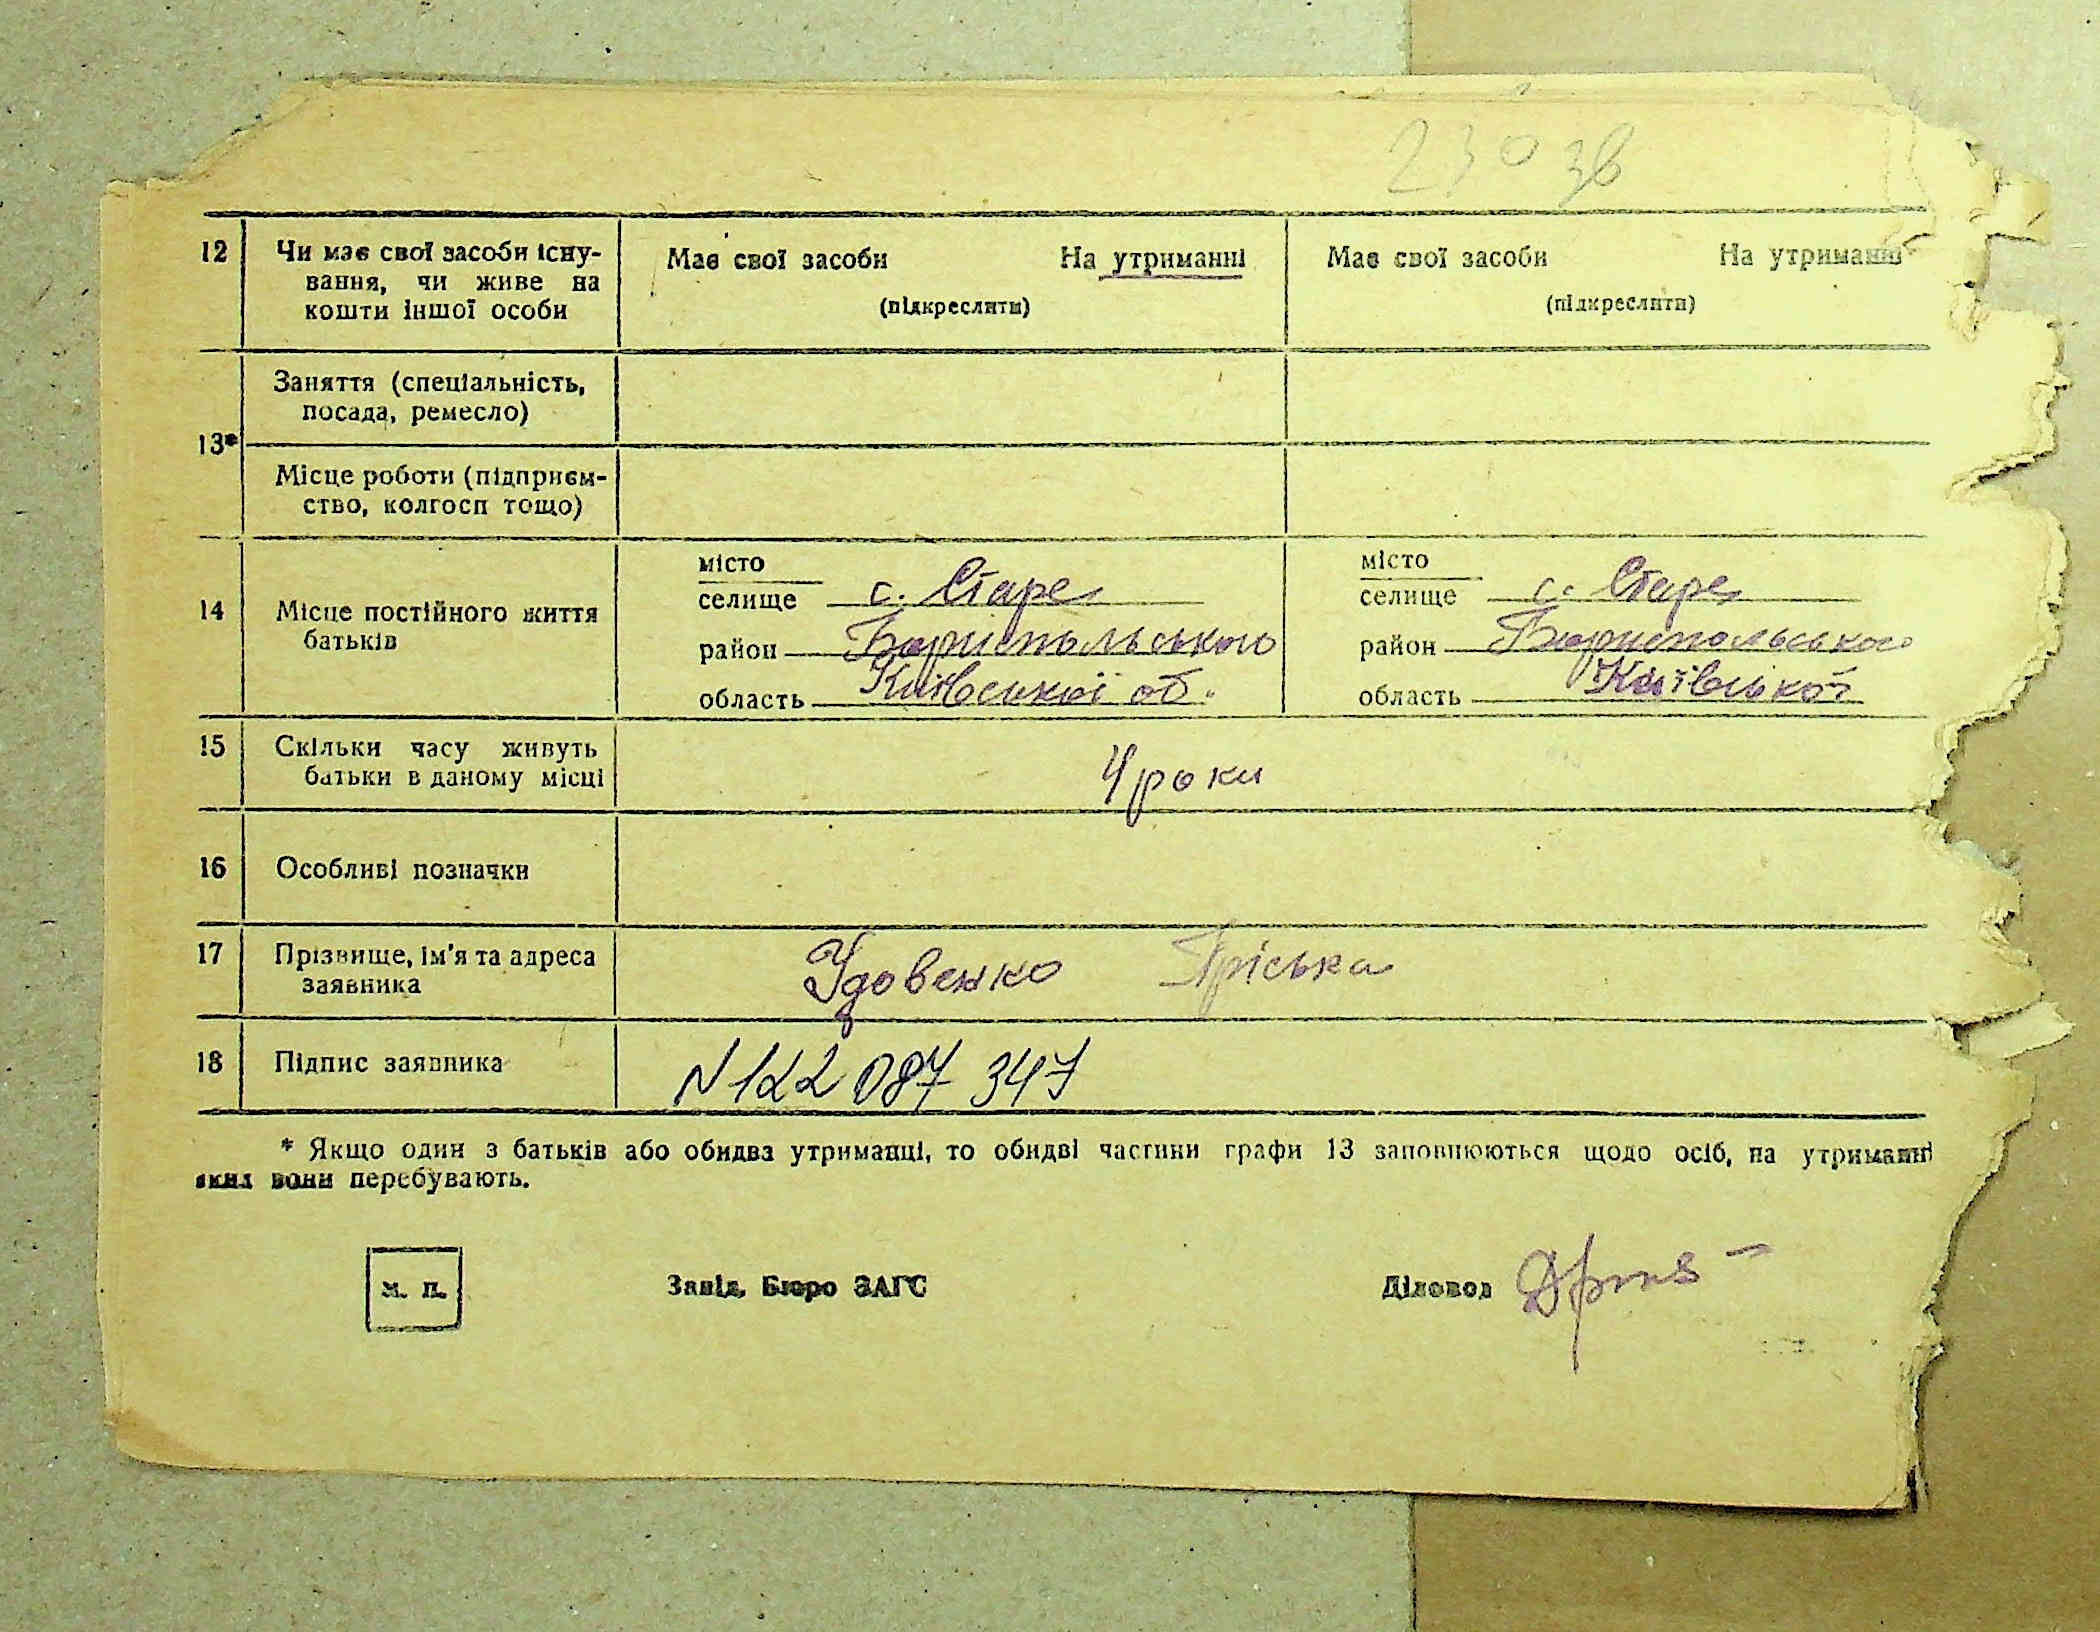 230 зв
12 Чи має свої засоби існу- Має свої засоби На утриманні Має свої засоби На утриманні
вання, чи живе на
кошти іншої особи (підкреслити) (підкреслити)
Заняття (спеціальність,
посада, ремесло)
13*
Місце роботи (підприєм-
ство, колгосп тощо)
місто місто
селище с. Старе селище с. Старе
14 Місце постійного життя
батьків
район Бориспольського район Бориспольського
область Київської об. область Київської
15 Скільки часу живуть
батьки в даному місці 4 роки
16 Особливі позначки
17 Прізвище, ім'я та адреса
заявника Удовенко Пріська
18 Підпис заявника N 122 087 347
* Якщо один з батьків або обидва утриманці, то обидві частини графи 13 заповнюються щодо осіб, на утриманні
яких вони перебувають.
М. П. Завід. Бюро ЗАГС Діловод